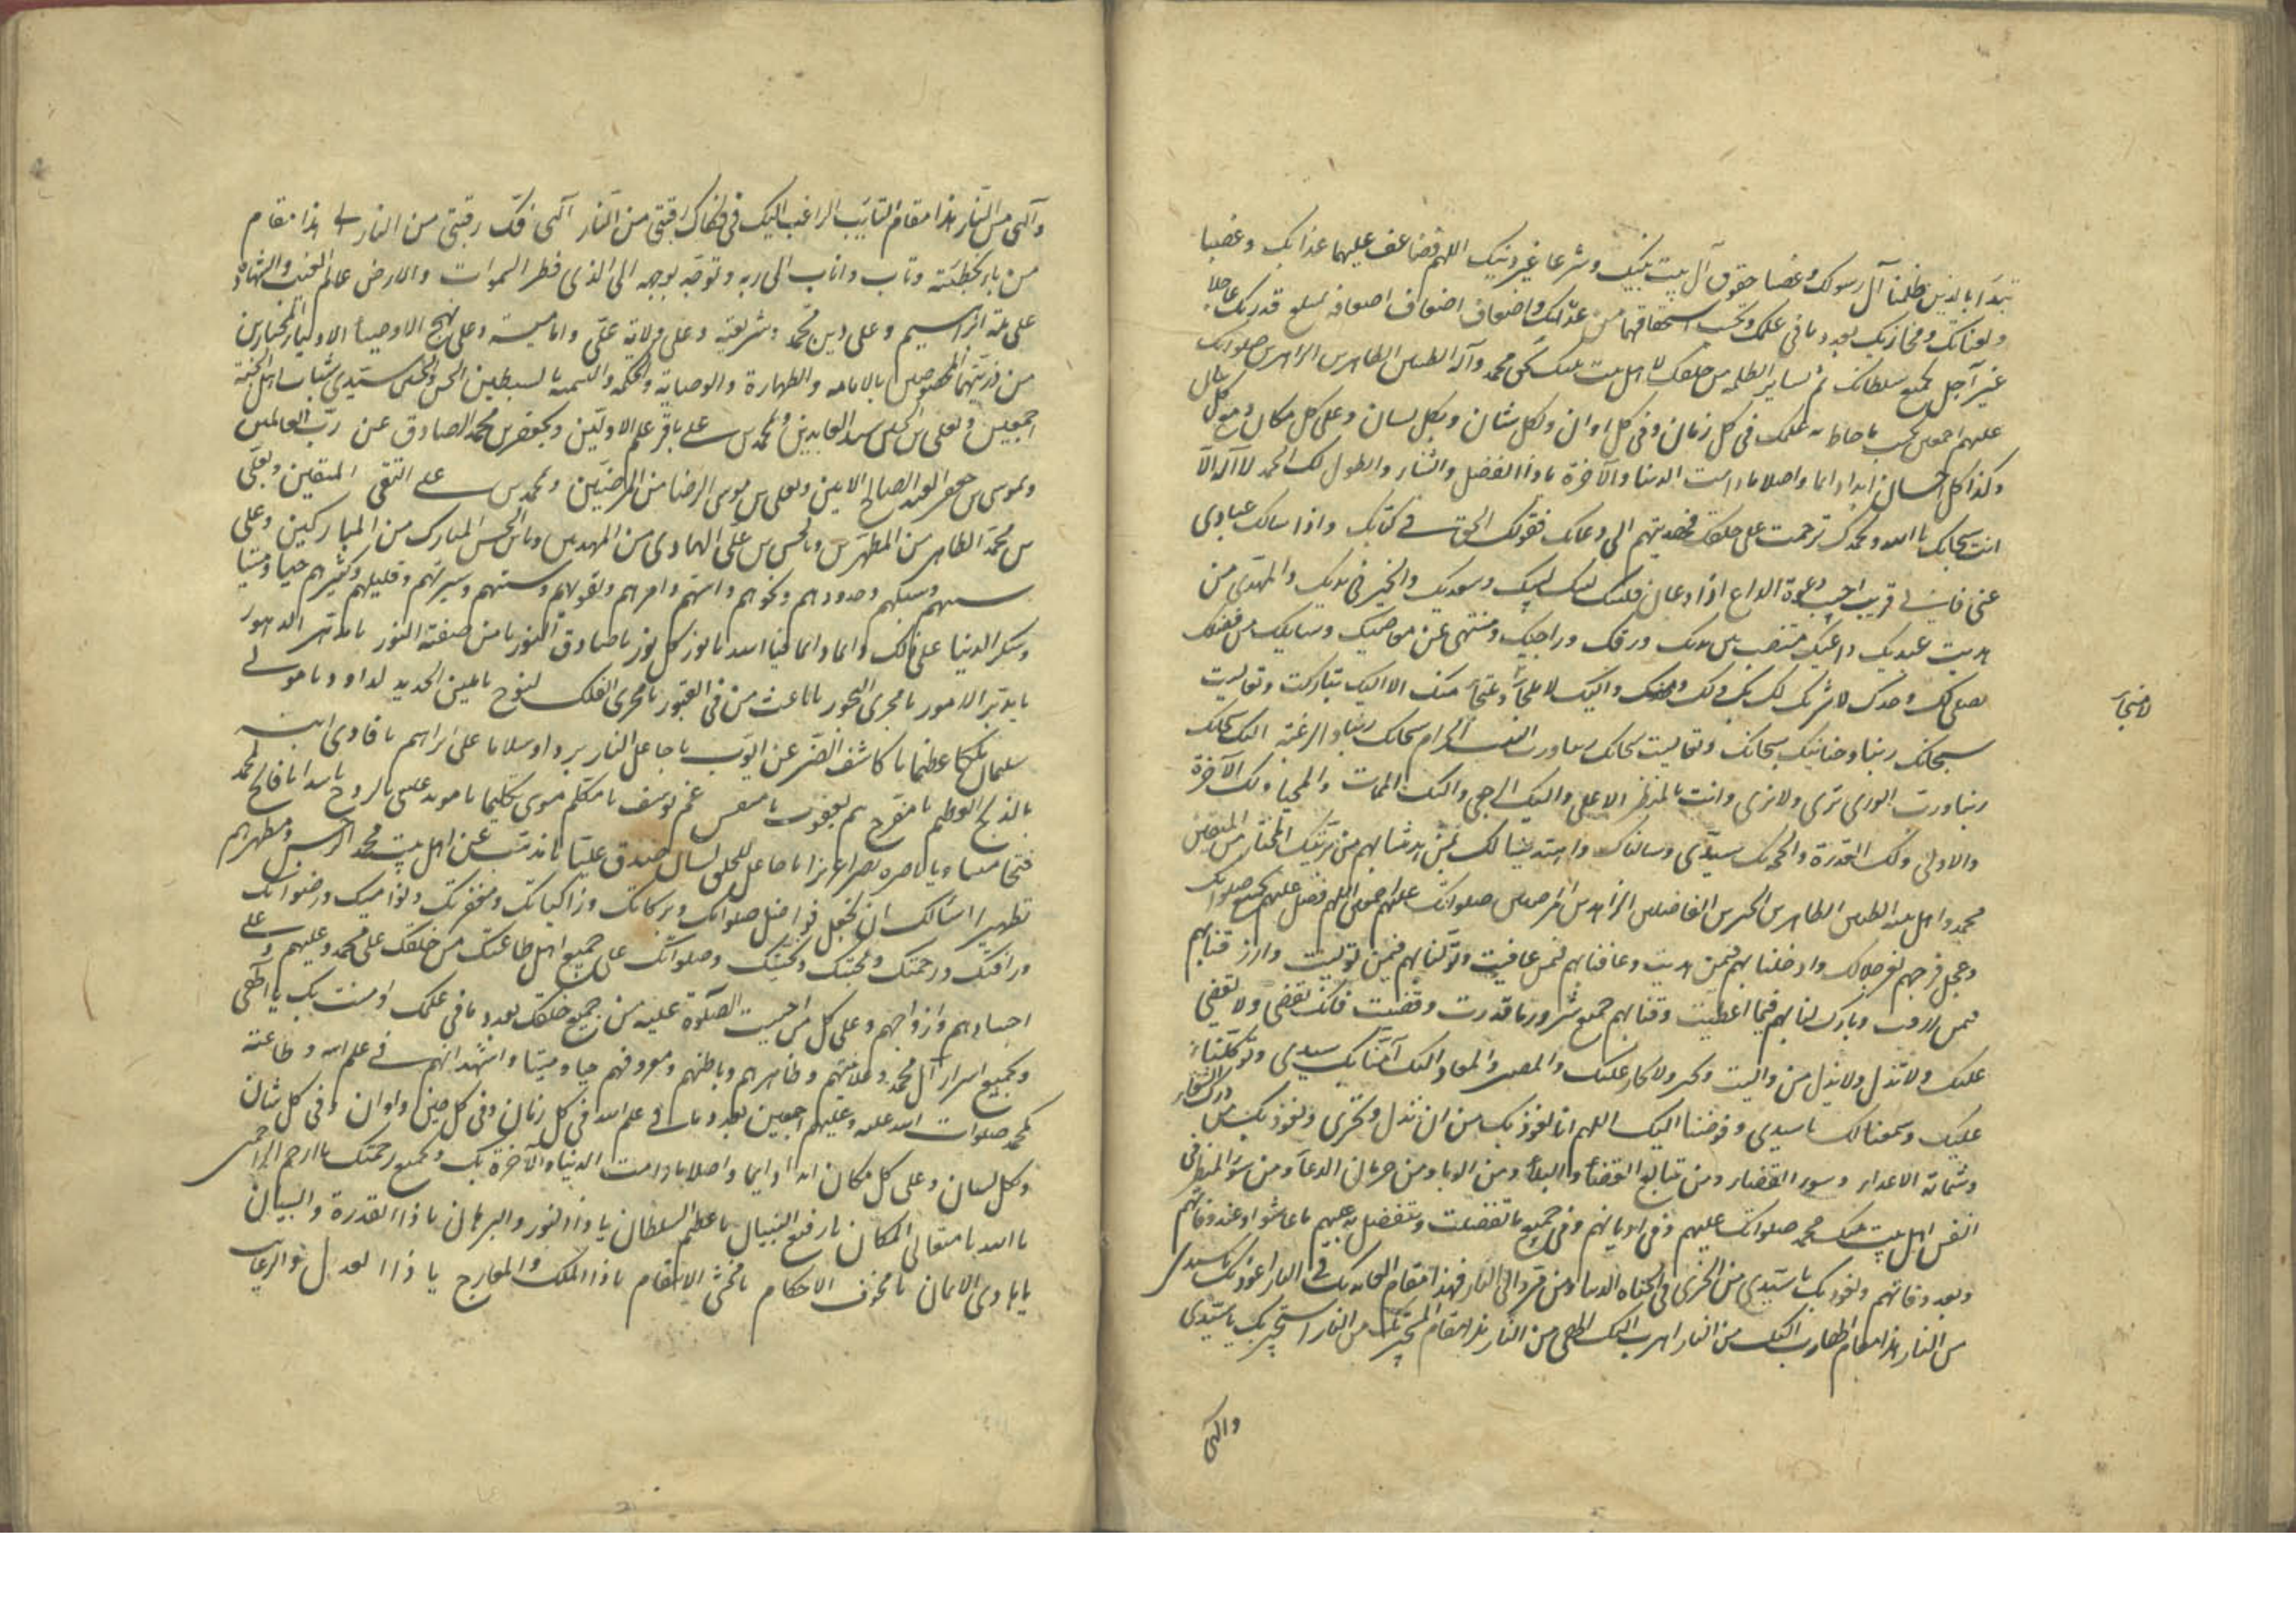 تبدا بالذين ظلما آل رسولك وغصبا حقوق آل بيت نبيك وشرعا غير دينك اللهم فضاعف عليهما عذابك وغضبا
ولعناتك ومخازيك بعدد ما في علمك وبحسب استحقاقهما من عدلك واضعاف اضعاف اضعافه بمبلغ قدرتك عاجلا
غير آجل بجميع سلطانك ثم لساير الظلمة من خلقك لاهل بيت نبيك بحق محمد وآله الطيبين الطاهرين الزاهرين صلواتك
عليهم اجمعين بحسب ما احاط به علمك في كل زمان وفي كل اوان ولكل شان وبكل لسان وعلى كل مكان ومع كل
وكذا كل انسان ابدا دائما واصلا ما دامت الدنيا والآخرة يا ذا الفضل والثناء والطول لك الحمد لا اله الا
انت سبحانك يا الله وبحمدك ترحمت على خلقك فهديتهم الى دعائك فقولك الحق في كتابك واذا سالك عبادي
عني فاني قريب اجيب دعوة الداع اذا دعان فلبيك لبيك لبيك وسعديك والخير في يديك والمهتدي من
هديت عبديك داعيك منتصب بين يديك ورقك وراجيك ومنتهي عن معاصيك وسايلك من فضلك
يصلي لك وحدك لا شريك لك بك ولك ومنك واليك لا ملجأ ولا منجأ منك الا اليك تباركت وتعاليت
لا منجا
سبحانك ربنا وحنانيك سبحانك وتعاليت سبحانك ربنا ورب البيت الحرام سبحانك ربنا والرغبة اليك سبحانك
ربنا ورب الورى ترى ولا ترى وانت بالمنظر الاعلى واليك الرجعى واليك الممات والمحيا ولك الآخرة
والاولى ولك القدرة والحجة سيدي وسالناك
محمد واهل بيته الطيبين الطاهرين الخيرين الفاضلين الزاهدين المرضيين صلواتك عليهم اجمعين اللهم فصل عليهم بجميع صلواتك
وعجل فرجهم بعز جلالك وادخلنا بهم فيمن هديت وعافنا بهم فيمن عافيت وتولنا بهم فيمن توليت وارزقنا بهم
فيمن رزقت وبارك لنا بهم فيما اعطيت وقنا بهم جميع شرور ما قدرت وقضيت فانك تقضي ولا يقضى
عليك ولا تذل ولا يذل من واليت وتجير ولا يجار عليك والمصير والمعاد اليك آمنا بك سيدي وتوكلنا
عليك وسمعنا لك يا سيدي وفوضنا اليك اللهم انا نعوذ بك من ان نذل ونخزى ونعوذ بك من درك الشقاء
وشماتة الاعداء وسوء القضاء ومن تتابع القضاء والبلاء ومن الوباء ومن حرمان الدعاء ومن سوء المنظر في
انفس اهل بيت نبيك محمد صلواتك عليهم وفي اديانهم وفي جميع ما تفضلت وتتفضل به عليهم ما عاشوا وعند وفاتهم
وبعد وفاتهم ونعوذ بك يا سيدي من الخزي في الحياة الدنيا ومن مرد الى النار فهذا مقام العائذ بك من النار اعوذ بك يا سيدي
من النار هذا مقام الهارب اليك من النار اهرب اليك الهي من النار هذا مقام المستجير بك من النار استجير بك يا سيدي
والهي
والهي من النار هذا مقام التايب الراغب اليك في فكاك رقبتي من النار الهي فك رقبتي من النار الهي هذا مقام
من باء بخطيئته وتاب واناب الى ربه وتوجه بوجهه الى الذي فطر السموات والارض عالم الغيب والشهادة
على ملة ابراهيم وعلى دين محمد وشريعته وعلى ولاية علي وامامته وعلى نهج الاوصياء الاولياء المختارين
من ذريتهما المخصوصين بالامامة والطهارة والوصاية والحكمة والتسمية بالسبطين الحسن والحسين سيدي شباب اهل الجنة
اجمعين وبعلي بن الحسين سيد العابدين وبمحمد بن علي باقر علم الاولين وبجعفر بن محمد الصادق عن رب العالمين
وبموسى بن جعفر العبد الصالح الامين وبعلي بن موسى الرضا من المرضيين وبمحمد بن علي التقي المتقين وبعلي
بن محمد الطاهر من المطهرين وبالحسن بن علي الهادي من المهديين وبابن الحسن المبارك من المباركين وعلى
سننهم وسبلهم وحدودهم ونحوهم وامتهم وامرهم وتقويهم وسنتهم وسيرتهم وقليلهم وكثيرهم حيا وميتا
وشكر الدنيا على ذلك دائما دائما فيا الله يا نور كل نور يا صادق النور يا من صفته النور يا مدهر الدهور
يا مدبر الامور يا مجري البحور يا باعث من في القبور يا مجري الفلك لنوح يا ملين الحديد لداود يا موتي
سليمان ملكا عظيما يا كاشف الضر عن ايوب يا جاعل النار بردا وسلاما على ابراهيم يا فادي ابنه
بالذبح العظيم يا مفرج هم يعقوب يا منفس غم يوسف يا مكلم موسى تكليما يا مؤيد عيسى بالروح تاييدا يا فاتح لمحمد
فتحا مبينا ويا ناصره نصرا عزيزا يا جاعل للخلق لسان صدق عليا يا مذهب عن اهل بيت محمد الرجس ومطهرهم
تطهيرا اسالك ان تجعل فواضل صلواتك وبركاتك وزاكياتك ومغفرتك ونواميك ورضوانك
ورافتك ورحمتك ومحبتك وتحيتك وصلواتك على جميع اهل طاعتك من خلقك على محمد وعليهم وعلى
اجسادهم وازواجهم وعلى كل من احببت الصلوة عليه من جميع خلقك بعدد ما في علمك آمنت بك يا الهي
وبجميع اسرار آل محمد وعلانيتهم وظاهرهم وباطنهم ومعروفهم حيا وميتا واشهد انهم في علم الله وطاعته
كمحمد صلوات الله عليه وعليهم اجمعين بعدد ما في علم الله في كل زمان وفي كل حين واوان وفي كل شان
وبكل لسان وعلى كل مكان ابدا دايما واصلا ما دامت الدنيا والآخرة بك وبجميع رحمتك يا ارحم الراحمين
يا الله يا متعالي المكان يا رفيع البنيان يا عظيم السلطان يا ذا النور والبرهان يا ذا القدرة والبيان
يا هادي الايمان يا مخوف الاحكام يا مخشي الانتقام يا ذا الملك والمعارج يا ذا العدل والرغايب